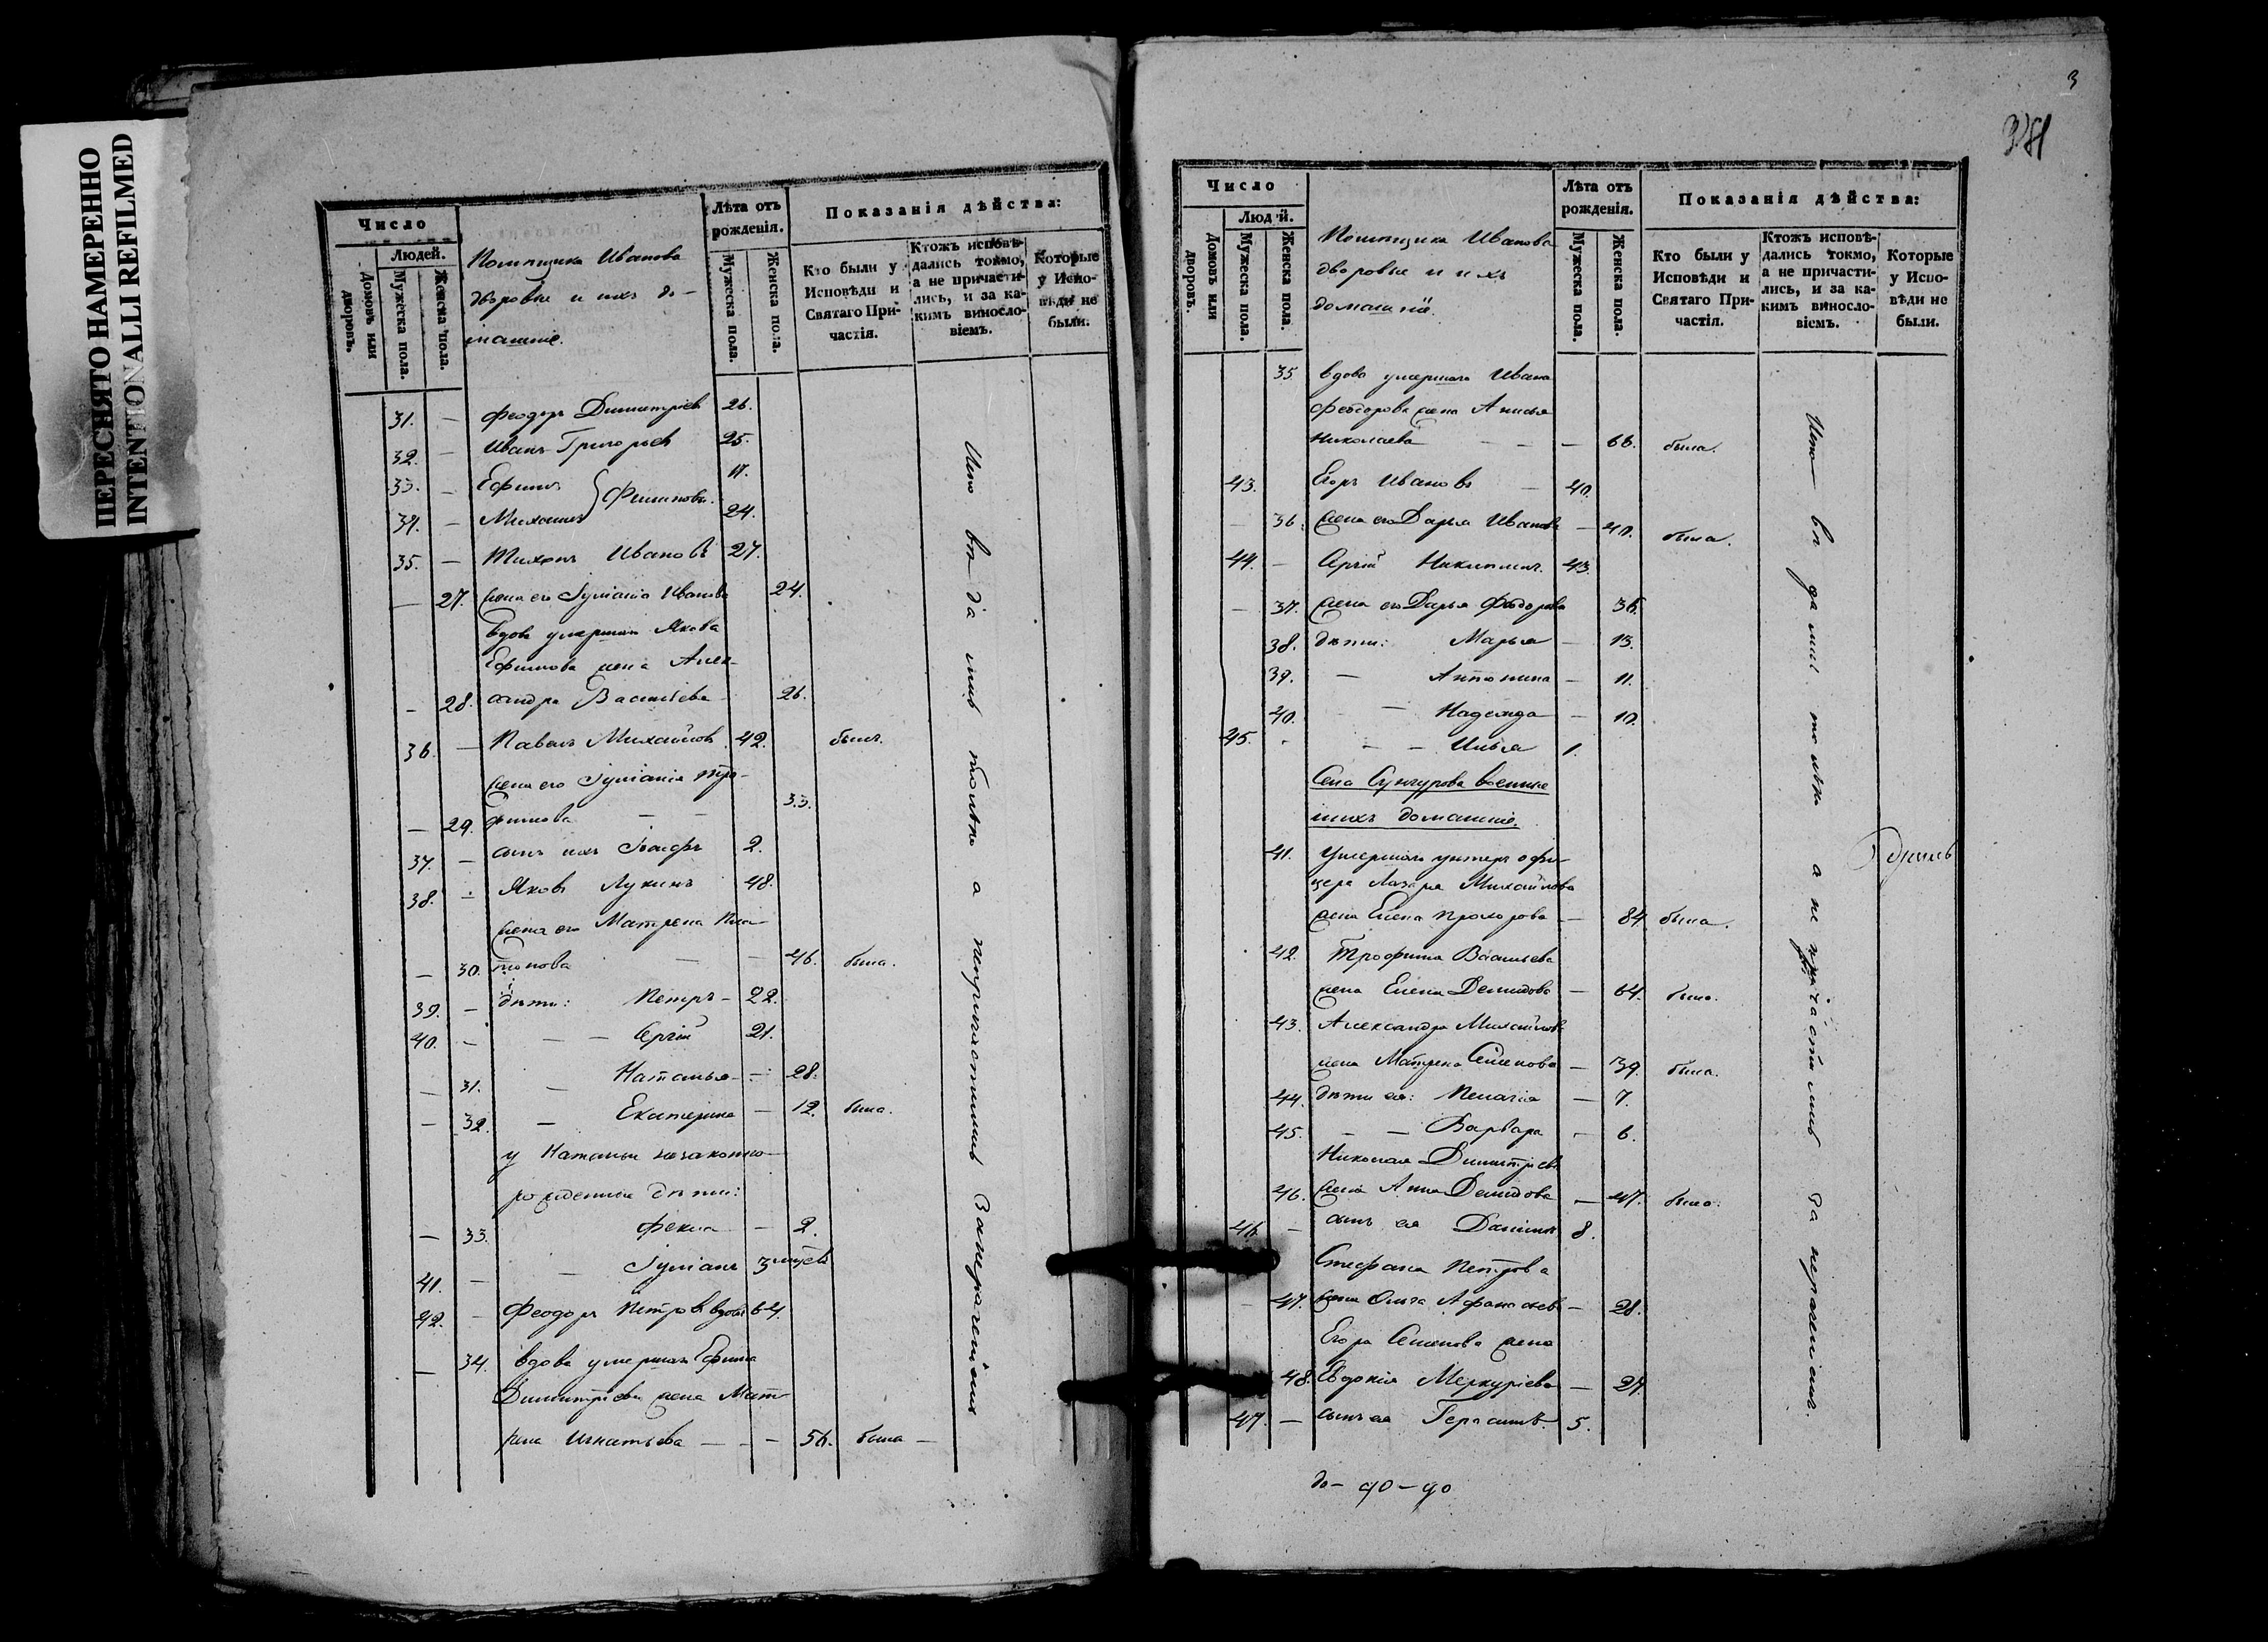 ПЕРЕСНЯТО НАМЕРЕННО
INTENTIONALLI REFILMED
Число
Людей.
Домовъ или дворовъ.
Мужеска пола.
Женска пола.
Помѣщика Иванова
дворовые и ихъ до-
машніе.
Лѣта отъ рожденія.
Мужеска пола.
Женска пола.
Показанія дѣйства:
Кто были у Исповѣди и Святаго Причастія.
Ктожъ исповѣдались токмо, а не причастились, и за какимъ винословіемъ.
Которые у Исповѣди не были.
31. — Феодоръ Димитріевъ 26.
32. — Иванъ Григорьевъ 25.
33. — Ефимъ 17.
34. — Михаилъ } Филиповы 24.
35. — Тихонъ Ивановъ 27.
— 27. жена его Іуліанія Иванова 24.
вдова умершаго Якова
Ефимова жена Алек-
— 28. сандра Васильева 26.
36. — Павелъ Михайловъ 42. былъ.
жена его Іуліанія Тро-
— 29. фимова — — 33.
37. — сынъ ихъ Іосифъ 2.
38. — Яковъ Лукинъ 48.
жена его Матрена Пла-
— 30. тонова — — 46. была.
39. — дѣти: Петръ — 22.
40. — — — Сергій 21.
— 31. — Наталья — 28.
— 32. — Екатерина — 12. была.
у Натальи незаконно-
рожденные дѣти:
— 33. Фекла — 2.
41. — — Іуліанъ 3 мѣсяц.
42. — Феодоръ Петровъ вдовъ 64.
— 34. вдова умершаго Ефима
Димитріева жена Мат-
рена Игнатьева — — — 56. была —
Исповѣдались только а не причастились за нераченіемъ
3
381
Число
Людей.
Домовъ или дворовъ.
Мужеска пола.
Женска пола.
Помѣщика Иванова
дворовые и ихъ
домашніе.
Лѣта отъ рожденія.
Мужеска пола.
Женска пола.
Показанія дѣйства:
Кто были у Исповѣди и Святаго Причастія.
Ктожъ исповѣдались токмо, а не причастились, и за какимъ винословіемъ.
Которые у Исповѣди не были.
35. вдова умершаго Ивана
Феодорова жена Анисья
Николаева — — — 66. была.
43. Егоръ Ивановъ — 40.
— 36. жена его Дарья Иванова — 40. была.
44. — Сергій Никитинъ 43.
— 37. жена его Дарья Феодорова 36.
38. дѣти: Марья — 13.
39. — Антонина — 11.
40. — Надежда — 10.
45. — — Илья 1.
Села Сунгурова военные
и ихъ домашніе.
41. Умершаго унтеръ офи-
цера Лазаря Михайлова
жена Елена Прохорова — 84. была.
42. Трофима Васильева
жена Елена Демидова — 64. была.
43. Александра Михайлова
жена Матрена Семенова — 39. была.
44. дѣти ея: Пелагія — 7.
45. — — Варвара — 6.
Николая Димитріева
46. жена Анна Демидова — 47. была.
46. — сынъ ея Даніилъ 8.
Стефана Петрова
— 47. жена Ольга Афанасьева — 28.
Егора Семенова жена
48. Евдокія Меркуріева — 27.
47. — сынъ ея Герасимъ 5.
Исповѣдались только а не причастились за нераченіемъ.
до — 90 — 90